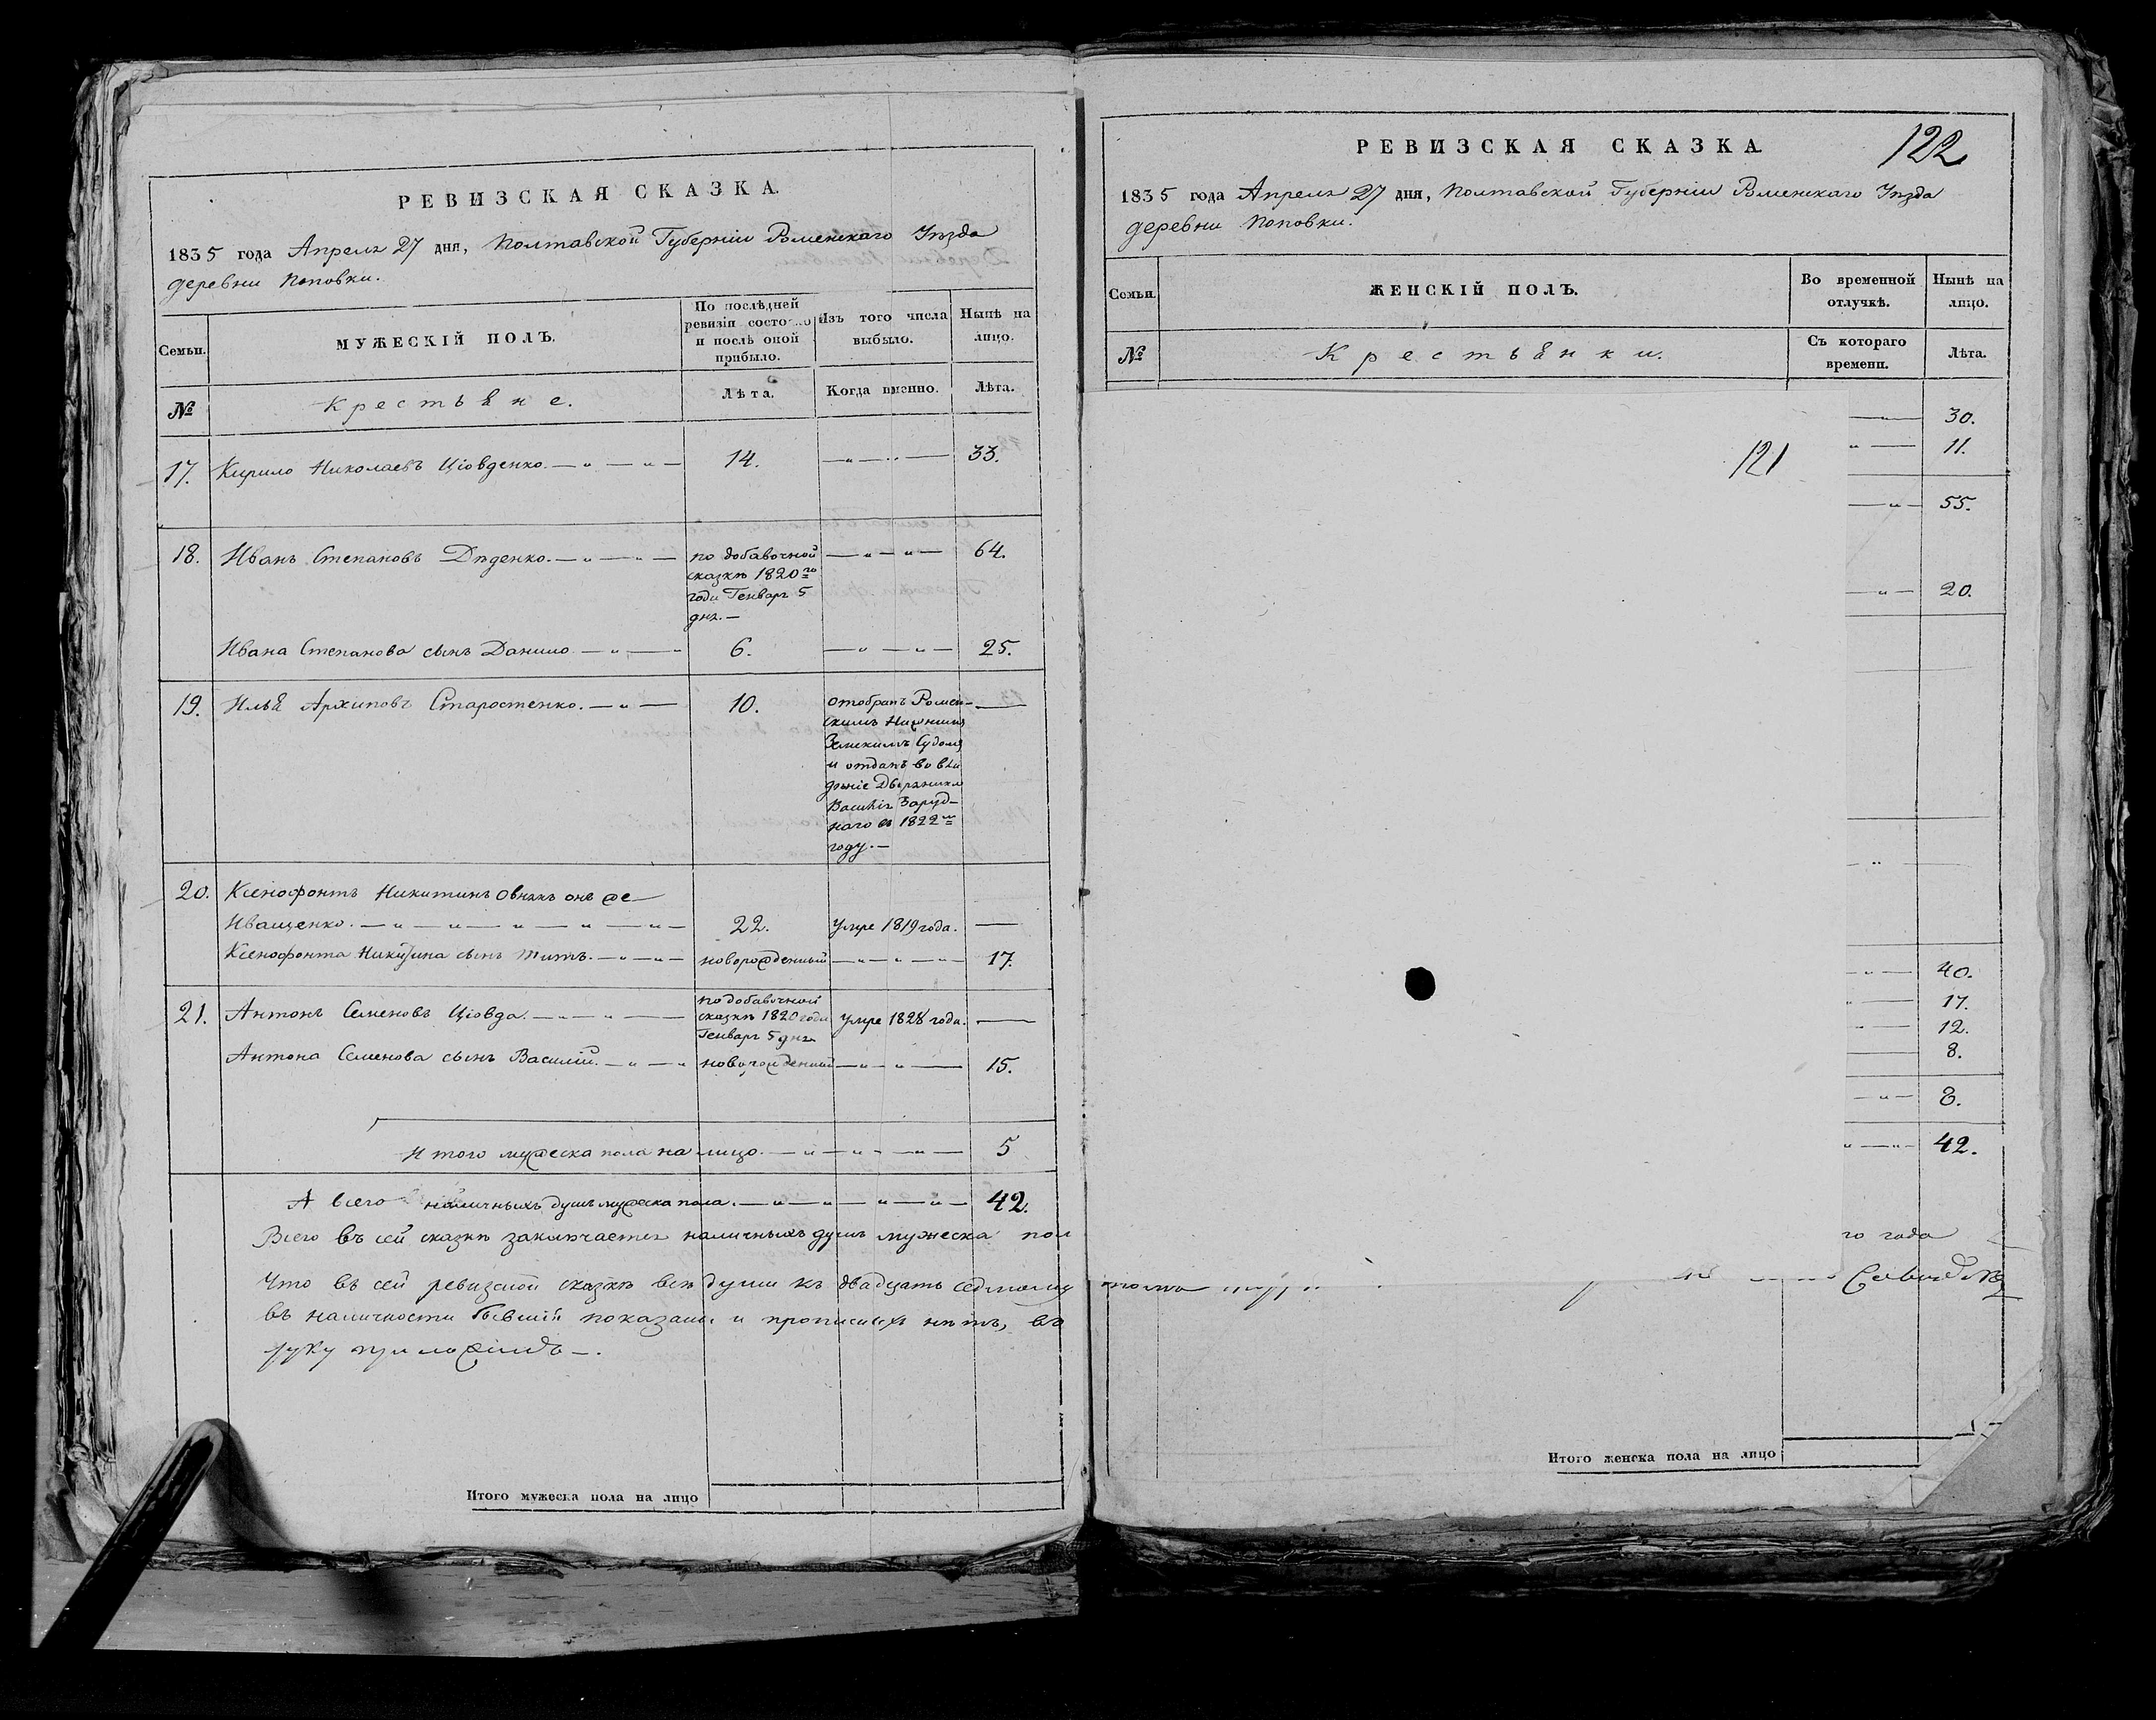 РЕВИЗСКАЯ СКАЗКА.
1835 года Апреля 27 дня, Полтавской Губерніи Роменскаго Уѣзда
деревни Поповки.
Семьи.
МУЖЕСКІЙ ПОЛЪ.
По послѣдней
ревизіи состояло
и послѣ оной
прибыло.
Изъ того числа
выбыло.
Нынѣ на
лицо.
№
Крестьяне.
Лѣта.
Когда именно.
Лѣта.
17. Кирило Николаевъ Ціовденко. 14. 33.
18. Иванъ Степановъ Дѣденко. по добавочной 64.
сказкѣ 1820го
года Генваря 5
дня.
Ивана Степанова сынъ Данило 6. 25.
19. Илья Архиповъ Старостенко. 10. отобранъ Ромен-
скимъ Нижнимъ
Земскимъ Судомъ
и отданъ во вла
дѣніе Дворянина
Василія Заруд-
наго въ 1822м
году.
20. Ксенофонтъ Никитинъ онъ же
Иващенко. 22. умре 1819 года.
Ксенофонта Никитина сынъ Титъ. новорожденный 17.
21. Антонъ Семеновъ Ціовда. по добавочной
сказкѣ 1820 года умре 1828 года.
Генваря 5 дня
Антона Семенова сынъ Василій. новорожденный 15.
Итого мужеска пола на лицо. 5
А всего наличныхъ душъ мужеска пола. 42.
Всего въ сей сказкѣ заключается наличныхъ душъ мужеска пол
Что въ сей ревизской сказкѣ всѣ души къ двадцать седмому
въ наличности бывшій показаны и прописныхъ нѣтъ, въ
руку приложилъ.
Итого мужеска пола на лицо
РЕВИЗСКАЯ СКАЗКА
122
1835 года Апреля 27 дня, Полтавской Губерніи Роменскаго Уѣзда
деревни Поповки.
Семьи.
ЖЕНСКІЙ ПОЛЪ.
Во временной
отлучкѣ.
Нынѣ на
лицо.
№
Крестьянки.
Съ котораго
времени.
Лѣта.
30.
11.
121
55.
20.
40.
17.
12.
8.
8.
42.
го года
Итого женска пола на лицо